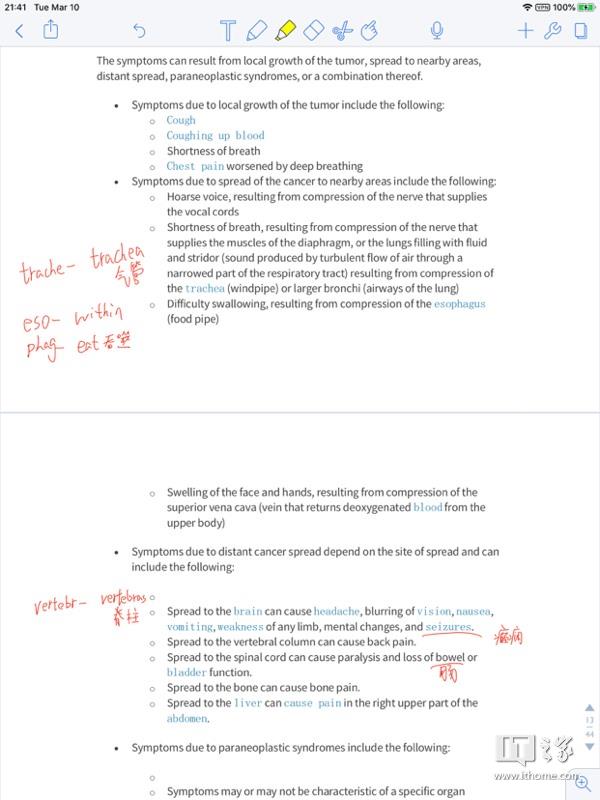 21:41 Tue Mar 10
VPN 100%
The symptoms can result from local growth of the tumor, spread to nearby areas,
distant spread, paraneoplastic syndromes, or a combination thereof.
• Symptoms due to local growth of the tumor include the following:
○ Cough
○ Coughing up blood
○ Shortness of breath
○ Chest pain worsened by deep breathing
• Symptoms due to spread of the cancer to nearby areas include the following:
○ Hoarse voice, resulting from compression of the nerve that supplies
the vocal cords
○ Shortness of breath, resulting from compression of the nerve that
supplies the muscles of the diaphragm, or the lungs filling with fluid
and stridor (sound produced by turbulent flow of air through a
narrowed part of the respiratory tract) resulting from compression of
the trachea (windpipe) or larger bronchi (airways of the lung)
○ Difficulty swallowing, resulting from compression of the esophagus
(food pipe)
trache- trachea
气管
eso- within
phag- eat 吞噬
○ Swelling of the face and hands, resulting from compression of the
superior vena cava (vein that returns deoxygenated blood from the
upper body)
• Symptoms due to distant cancer spread depend on the site of spread and can
include the following:
vertebr- vertebras
脊柱
○ Spread to the brain can cause headache, blurring of vision, nausea,
vomiting, weakness of any limb, mental changes, and seizures.
癫痫
○ Spread to the vertebral column can cause back pain.
○ Spread to the spinal cord can cause paralysis and loss of bowel or
bladder function.
肠
○ Spread to the bone can cause bone pain.
○ Spread to the liver can cause pain in the right upper part of the
abdomen.
• Symptoms due to paraneoplastic syndromes include the following:
○ Symptoms may or may not be characteristic of a specific organ
13
44
IT之家
www.ithome.com